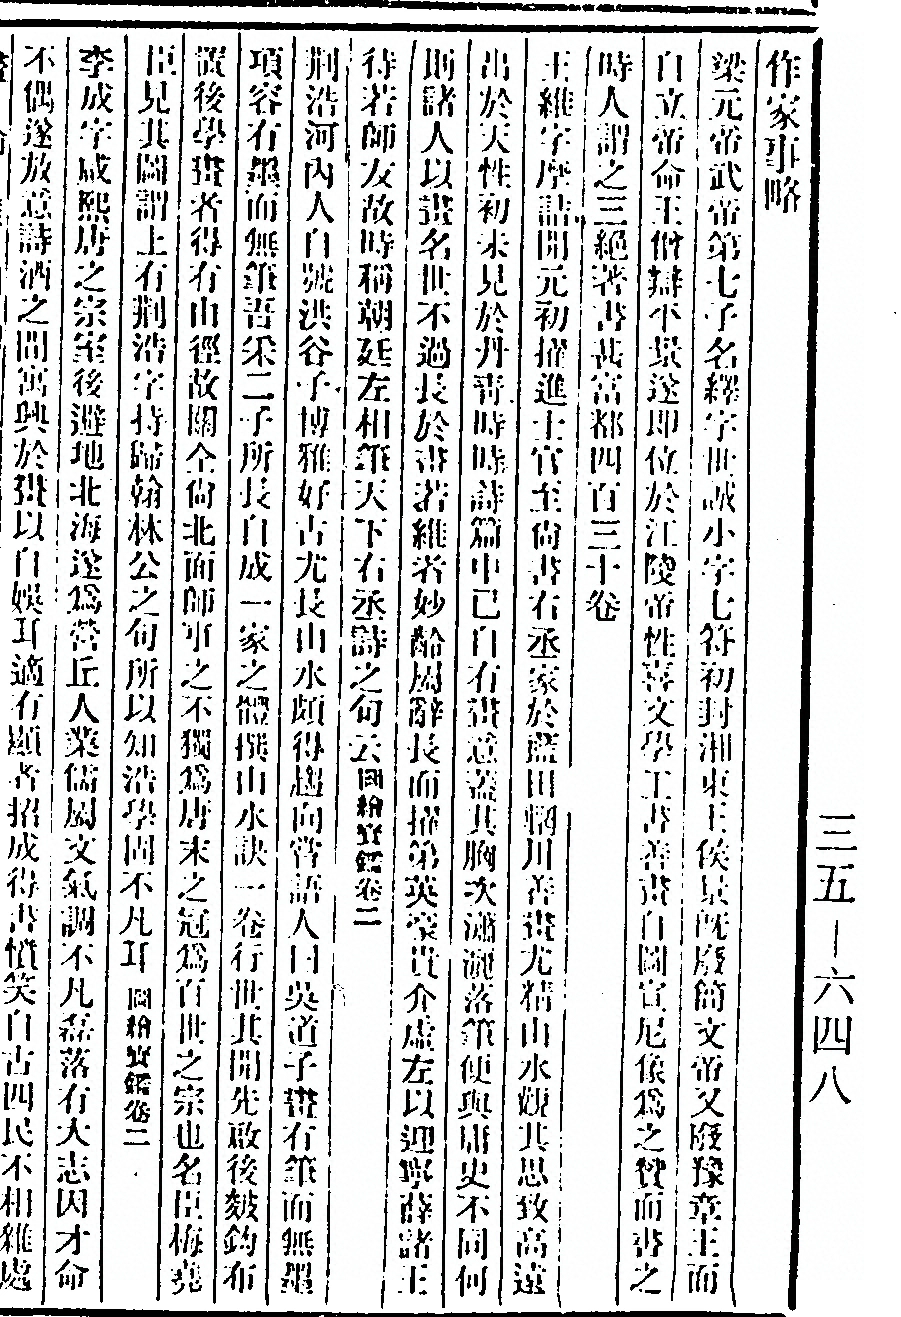 作家事略
梁元帝武帝第七子名繹字世誠小字七符初封湘東王侯景旣廢簡文帝又廢豫章王而
自立帝命王僧辯平景遂即位於江陵帝性喜文學工書善畫自圖宣尼像爲之贊而書之
時人謂之三絕著書甚富都四百三十卷
王維字摩詰開元初擢進士官至尙書右丞家於藍田輞川善畫尤精山水觀其思致高遠
出於天性初未見於丹靑時時詩篇中已自有畫意蓋其胸次瀟灑落筆便與庸史不同何
則諸人以畫名世不過長於畫若維者妙齡屬辭長而擢第英豪貴介虛左以迎寧薛諸王
待若師友故時稱朝廷左相筆天下右丞詩之句云圖繪寶鑑卷二
荆浩河內人自號洪谷子博雅好古尤長山水頗得趣向嘗語人曰吳道子畫有筆而無墨
項容有墨而無筆吾采二子所長自成一家之體撰山水訣一卷行世其開先啟後皴鈎布
置後學畫者得有由徑故關仝尙北面師事之不獨爲唐末之冠爲百世之宗也名臣梅堯
臣見其圖謂上有荆浩字持歸翰林公之句所以知浩學固不凡耳圖繪寶鑑卷二
李成字咸熙唐之宗室後避地北海遂爲營丘人業儒屬文氣調不凡磊落有大志因才命
不偶遂放意詩酒之間寓興於畫以自娛耳適有顯者招成得書憤笑自古四民不相雜處
三五—六四八